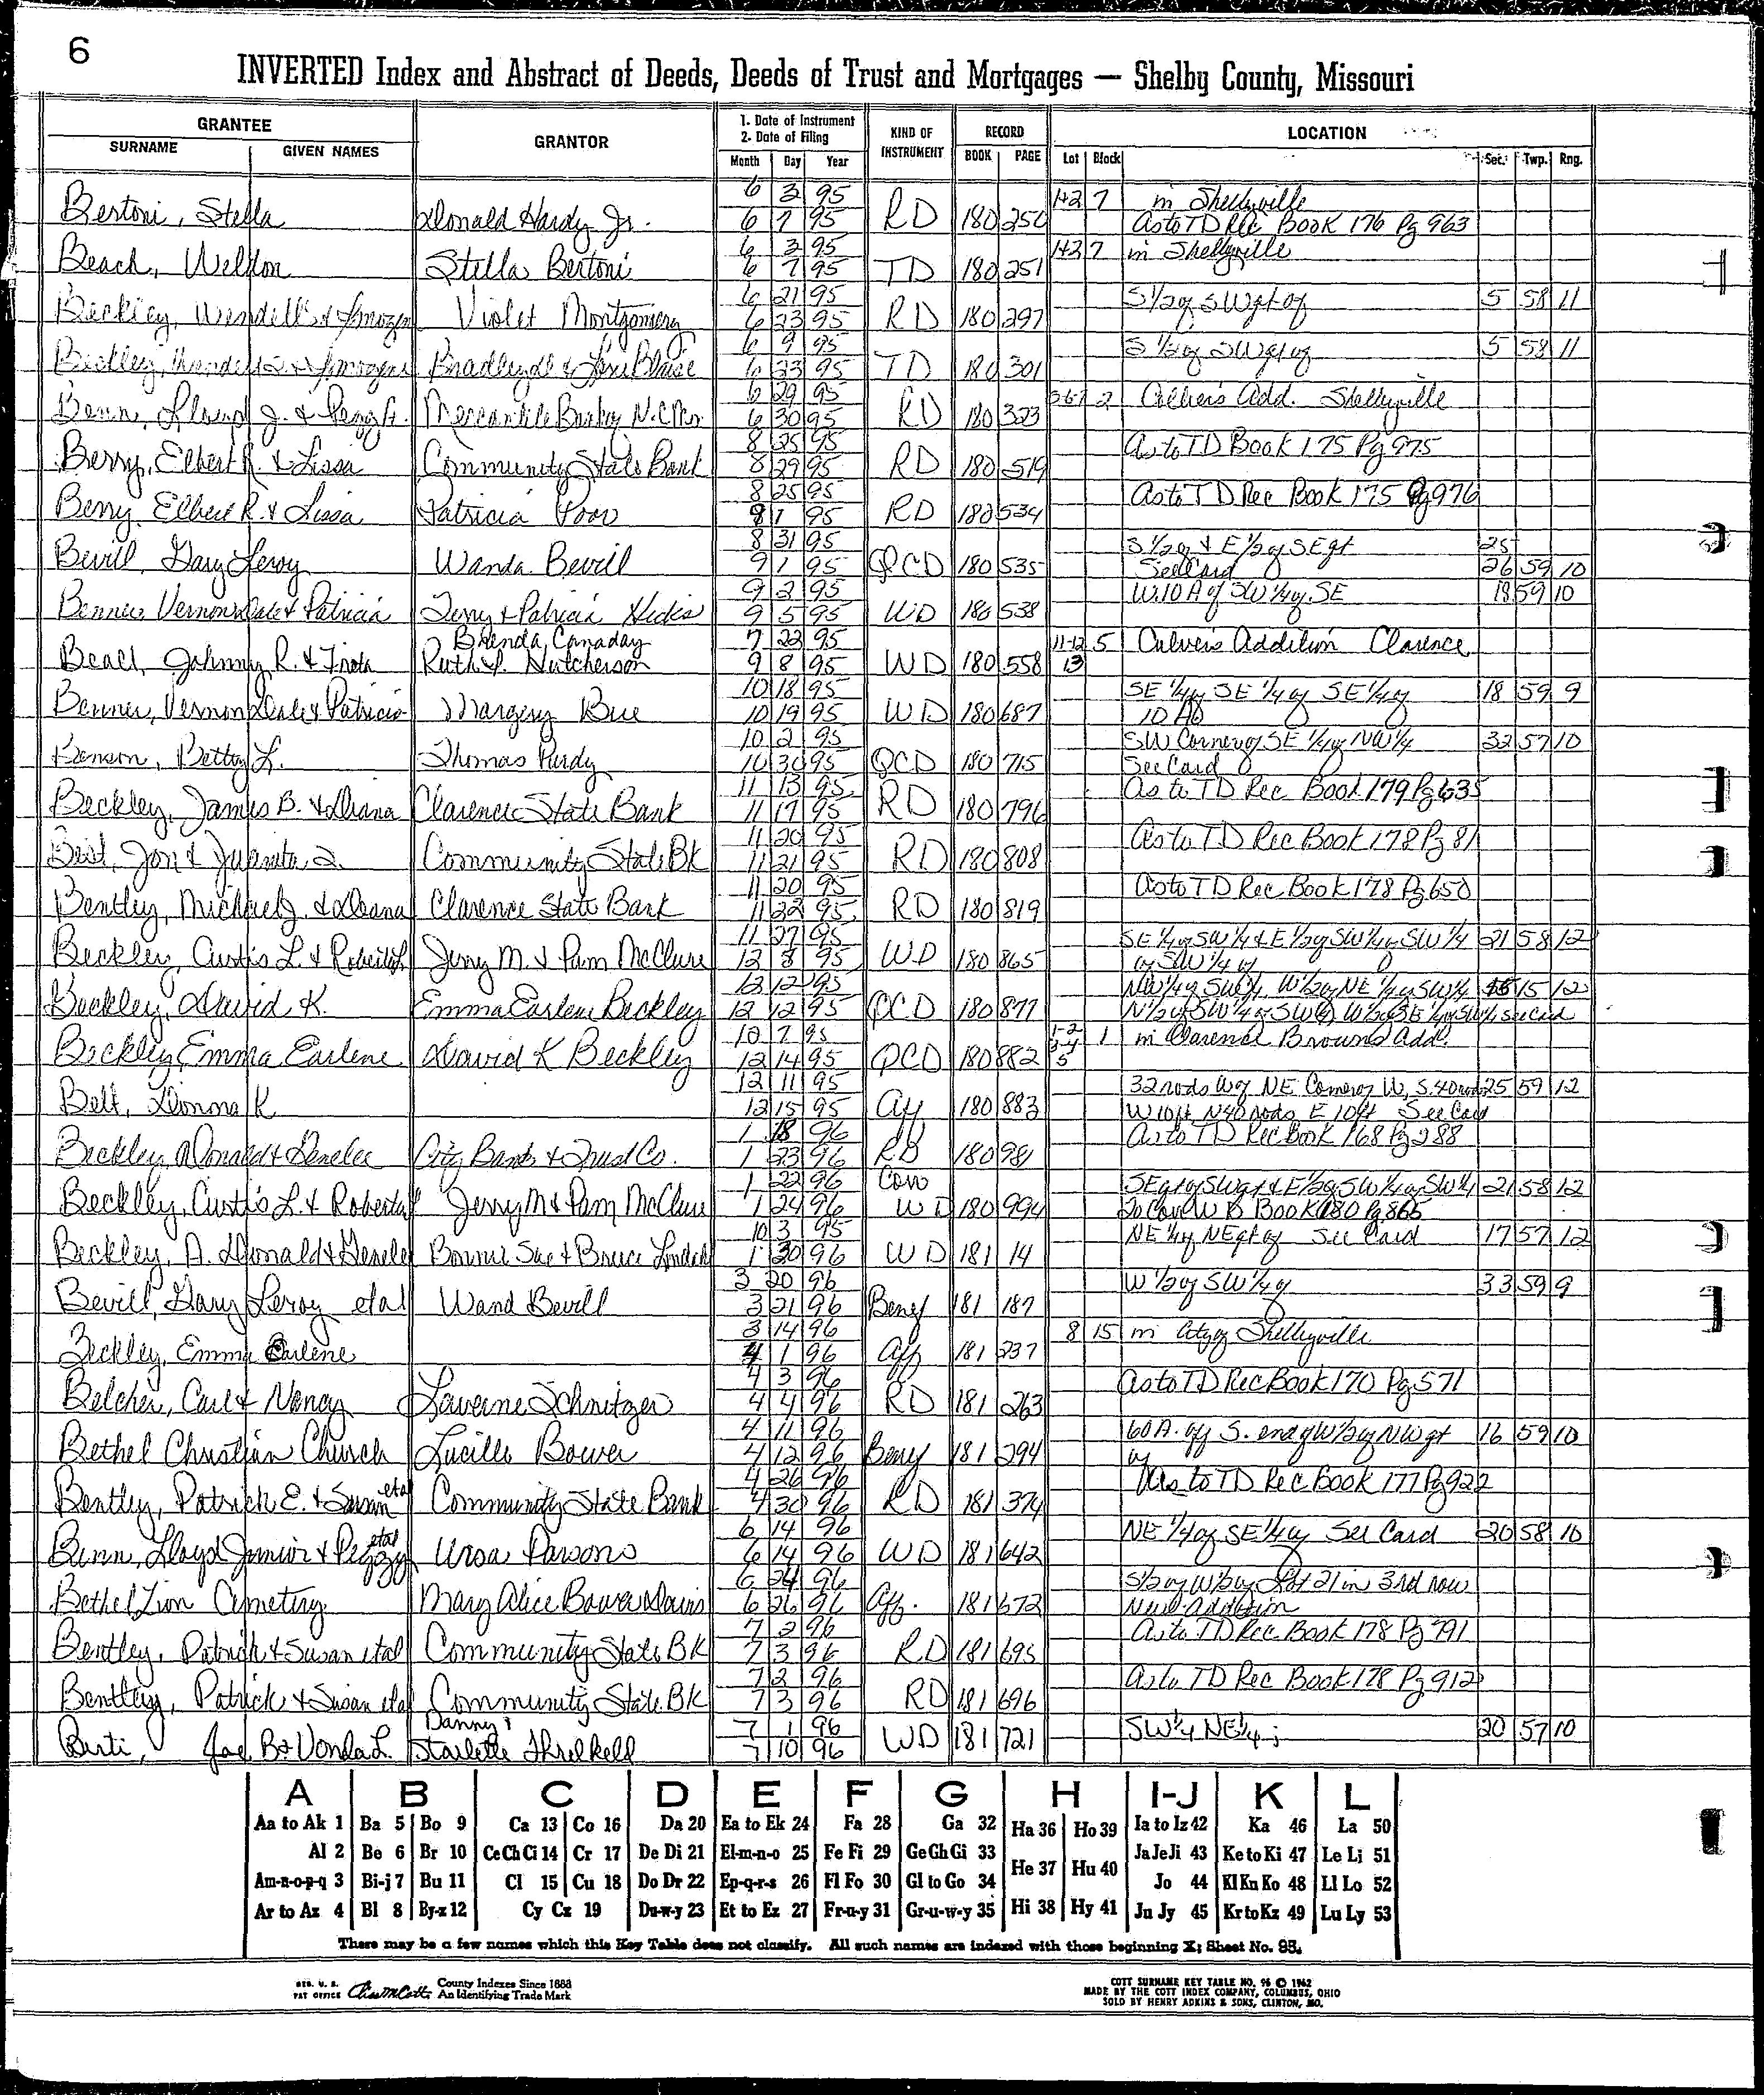 6
INVERTED Index and Abstract of Deeds, Deeds of Trust and Mortgages — Shelby County, Missouri
GRANTEE GRANTOR 1. Date of Instrument 2. Date of Filing KIND OF INSTRUMENT RECORD LOCATION
SURNAME GIVEN NAMES Month Day Year BOOK PAGE Lot Block Sec. Twp. Rng.
6 3 95 1+2 7 in Shelbyville
Bertoni, Stella Donald Hardy Jr. 6 7 95 RD 180 250 As to TD Rec Book 176 Pg 963
6 3 95 1+2 7 in Shelbyville
Beach, Weldon Stella Bertoni 6 7 95 TD 180 251
6 21 95 S 1/2 of SW qt of 5 58 11
Beckley, Wendell & Imogen Violet Montgomery 6 23 95 RD 180 297
6 9 95 S 1/2 of SW qt of 5 58 11
Beckley, & Imogene Bradley & Blaise 6 23 95 TD 180 301
6 29 95 5-6-7 2 Collier's Add. Shelbyville
Benn, Lloyd J. & Peggy A. Mercantile Bank of N.C. Mo 6 30 95 RD 180 323
8 25 95 As to TD Book 175 Pg 975
Berry, Elbert R. & Lissa Community State Bank 8 29 95 RD 180 519
8 25 95 As to TD Rec Book 175 Pg 976
Berry Elbert R. & Lissa Patricia Poor 9 1 95 RD 180 534
8 31 95 S 1/2 of & E 1/2 of SE qt 25
Bevill, Gary Leroy Wanda Bevill 9 1 95 QCD 180 535 See Card 26 59 10
9 2 95 W. 10 A of SW 1/4 of SE 18 59 10
Benner Vernon Dale & Patricia Terry & Patricia Hicks 9 5 95 WD 180 538
Brenda Canaday 7 22 95 11-12 5 Culver's Addition Clarence
Beall, Johnny R. & Ruth P. Hutcherson 9 8 95 WD 180 558 13
10 18 95 SE 1/4 of SE 1/4 of SE 1/4 of 18 59 9
Benner, Vernon Dale & Patricia Margery Bue 10 19 95 WD 180 687 10 A
10 2 95 SW Corner of SE 1/4 of NW 1/4 32 57 10
Benson, Betty L. Thomas Purdy 10 30 95 QCD 180 715 See Card
11 13 95 As to TD Rec Book 179 Pg 635
Beckley, James B. & Diana Clarence State Bank 11 17 95 RD 180 796
11 20 95 As to TD Rec Book 178 Pg 81
Jon & Juanita Community State BK 11 21 95 RD 180 808
11 20 95 As to TD Rec Book 178 Pg 650
Bentley, Michael J. & Deana Clarence State Bank 11 22 95 RD 180 819
11 27 95 SE 1/4 of SW 1/4 & E 1/2 of SW 1/4 of SW 1/4 21 58 12
Beckley, Curtis L. & Roberta L. Jerry M. & Pam McClure 12 8 95 WD 180 865 of SW 1/4 of
12 12 95 NW 1/4 of SW 1/4, W 1/2 of NE 1/4 of SW 1/4 15 12
Beckley, David K. Emma Earlene Beckley 12 12 95 QCD 180 877 N 1/2 of SW 1/4 of SW 1/4, W 1/2 of SE 1/4 of SW 1/4 See Card
10 7 95 1-2 1 in Clarence Browns Add.
Beckley, Emma Earlene David K Beckley 12 14 95 QCD 180 882 3-4 5
12 11 95 32 rods W of NE Corner of W, S. 40 rods 25 59 12
Belt, Donna K 12 15 95 Aff 180 883 W 10 ft N 40 rods E 10 ft See Card
1 18 96 As to TD Rec Book 168 Pg 288
Beckley, Donald & Genelee City Bank & Trust Co. 1 23 96 RD 180 981
1 22 96 Corr SE qt of SW qt & E 1/2 of SW 1/4 of SW 1/4 21 58 12
Beckley, Curtis L & Roberta Jerry M & Pam McClure 1 24 96 WD 180 994 To Corr WD Book 180 Pg 865
10 3 95 NE 1/4 of NE qt of See Card 17 57 12
Beckley, A. Donald & Genelee Bonnie Sue & Bruce 1 30 96 WD 181 14
3 20 96 W 1/2 of SW 1/4 of 33 59 9
Bevill, Gary Leroy etal Wand Bevill 3 21 96 Benef 181 187
3 14 96 8 15 in City of Shelbyville
Beckley, Emma Earlene 4 1 96 Aff 181 237
4 3 96 As to TD Rec Book 170 Pg 571
Belcher, Carl & Nancy Laverne Schnitzer 4 4 96 RD 181 263
4 11 96 60 A. off S. end of W 1/2 of NW qt 16 59 10
Bethel Christian Church Lucille Bower 4 12 96 Benef 181 294 of
4 26 96 As to TD Rec Book 177 Pg 922
Bentley, Patrick E. & Susan etal Community State Bank 4 30 96 RD 181 374
6 14 96 NE 1/4 of SE 1/4 of See Card 20 58 10
Benn, Lloyd Junior & Peggy etal Ursa Parsons 6 14 96 WD 181 642
6 24 96 S 1/2 of W 1/2 of Lot 21 in 3rd row
Bethel Zion Cemetery Mary Alice Bower Davis 6 26 96 Aff. 181 672 New Addition
7 2 96 As to TD Rec Book 178 Pg 791
Bentley, Patrick & Susan etal Community State BK 7 3 96 RD 181 695
7 2 96 As to TD Rec Book 178 Pg 912
Bentley, Patrick & Susan etal Community State BK 7 3 96 RD 181 696
Danny & 7 1 96 SW 1/4 NE 1/4; 20 57 10
Berti, Joe B & Vonda L. Starlette Threlkell 7 10 96 WD 181 721
A B C D E F G H I-J K L
Aa to Ak 1 Ba 5 Bo 9 Ca 13 Co 16 Da 20 Ea to Ek 24 Fa 28 Ga 32 Ha 36 Ho 39 Ia to Iz 42 Ka 46 La 50
Al 2 Be 6 Br 10 Ce Ch Ci 14 Cr 17 De Di 21 El-m-n-o 25 Fe Fi 29 Ge Gh Gi 33 He 37 Hu 40 Ja Je Ji 43 Ke to Ki 47 Le Li 51
Am-n-o-p-q 3 Bi-j 7 Bu 11 Cl 15 Cu 18 Do Dr 22 Ep-q-r-s 26 Fl Fo 30 Gl to Go 34 Hi 38 Hy 41 Jo 44 Kl Kn Ko 48 Ll Lo 52
Ar to Az 4 Bl 8 By-z 12 Cy Cz 19 Du-w-y 23 Et to Ez 27 Fr-u-y 31 Gr-u-w-y 35 Ju Jy 45 Kr to Kz 49 Lu Ly 53
There may be a few names which this Key Table does not classify. All such names are indexed with those beginning X; Sheet No. 95.
REG. U. S. PAT OFFICE County Indexes Since 1888 An Identifying Trade Mark
COTT SURNAME KEY TABLE NO. 96 © 1962
MADE BY THE COTT INDEX COMPANY, COLUMBUS, OHIO
SOLD BY HENRY ADKINS & SONS, CLINTON, MO.